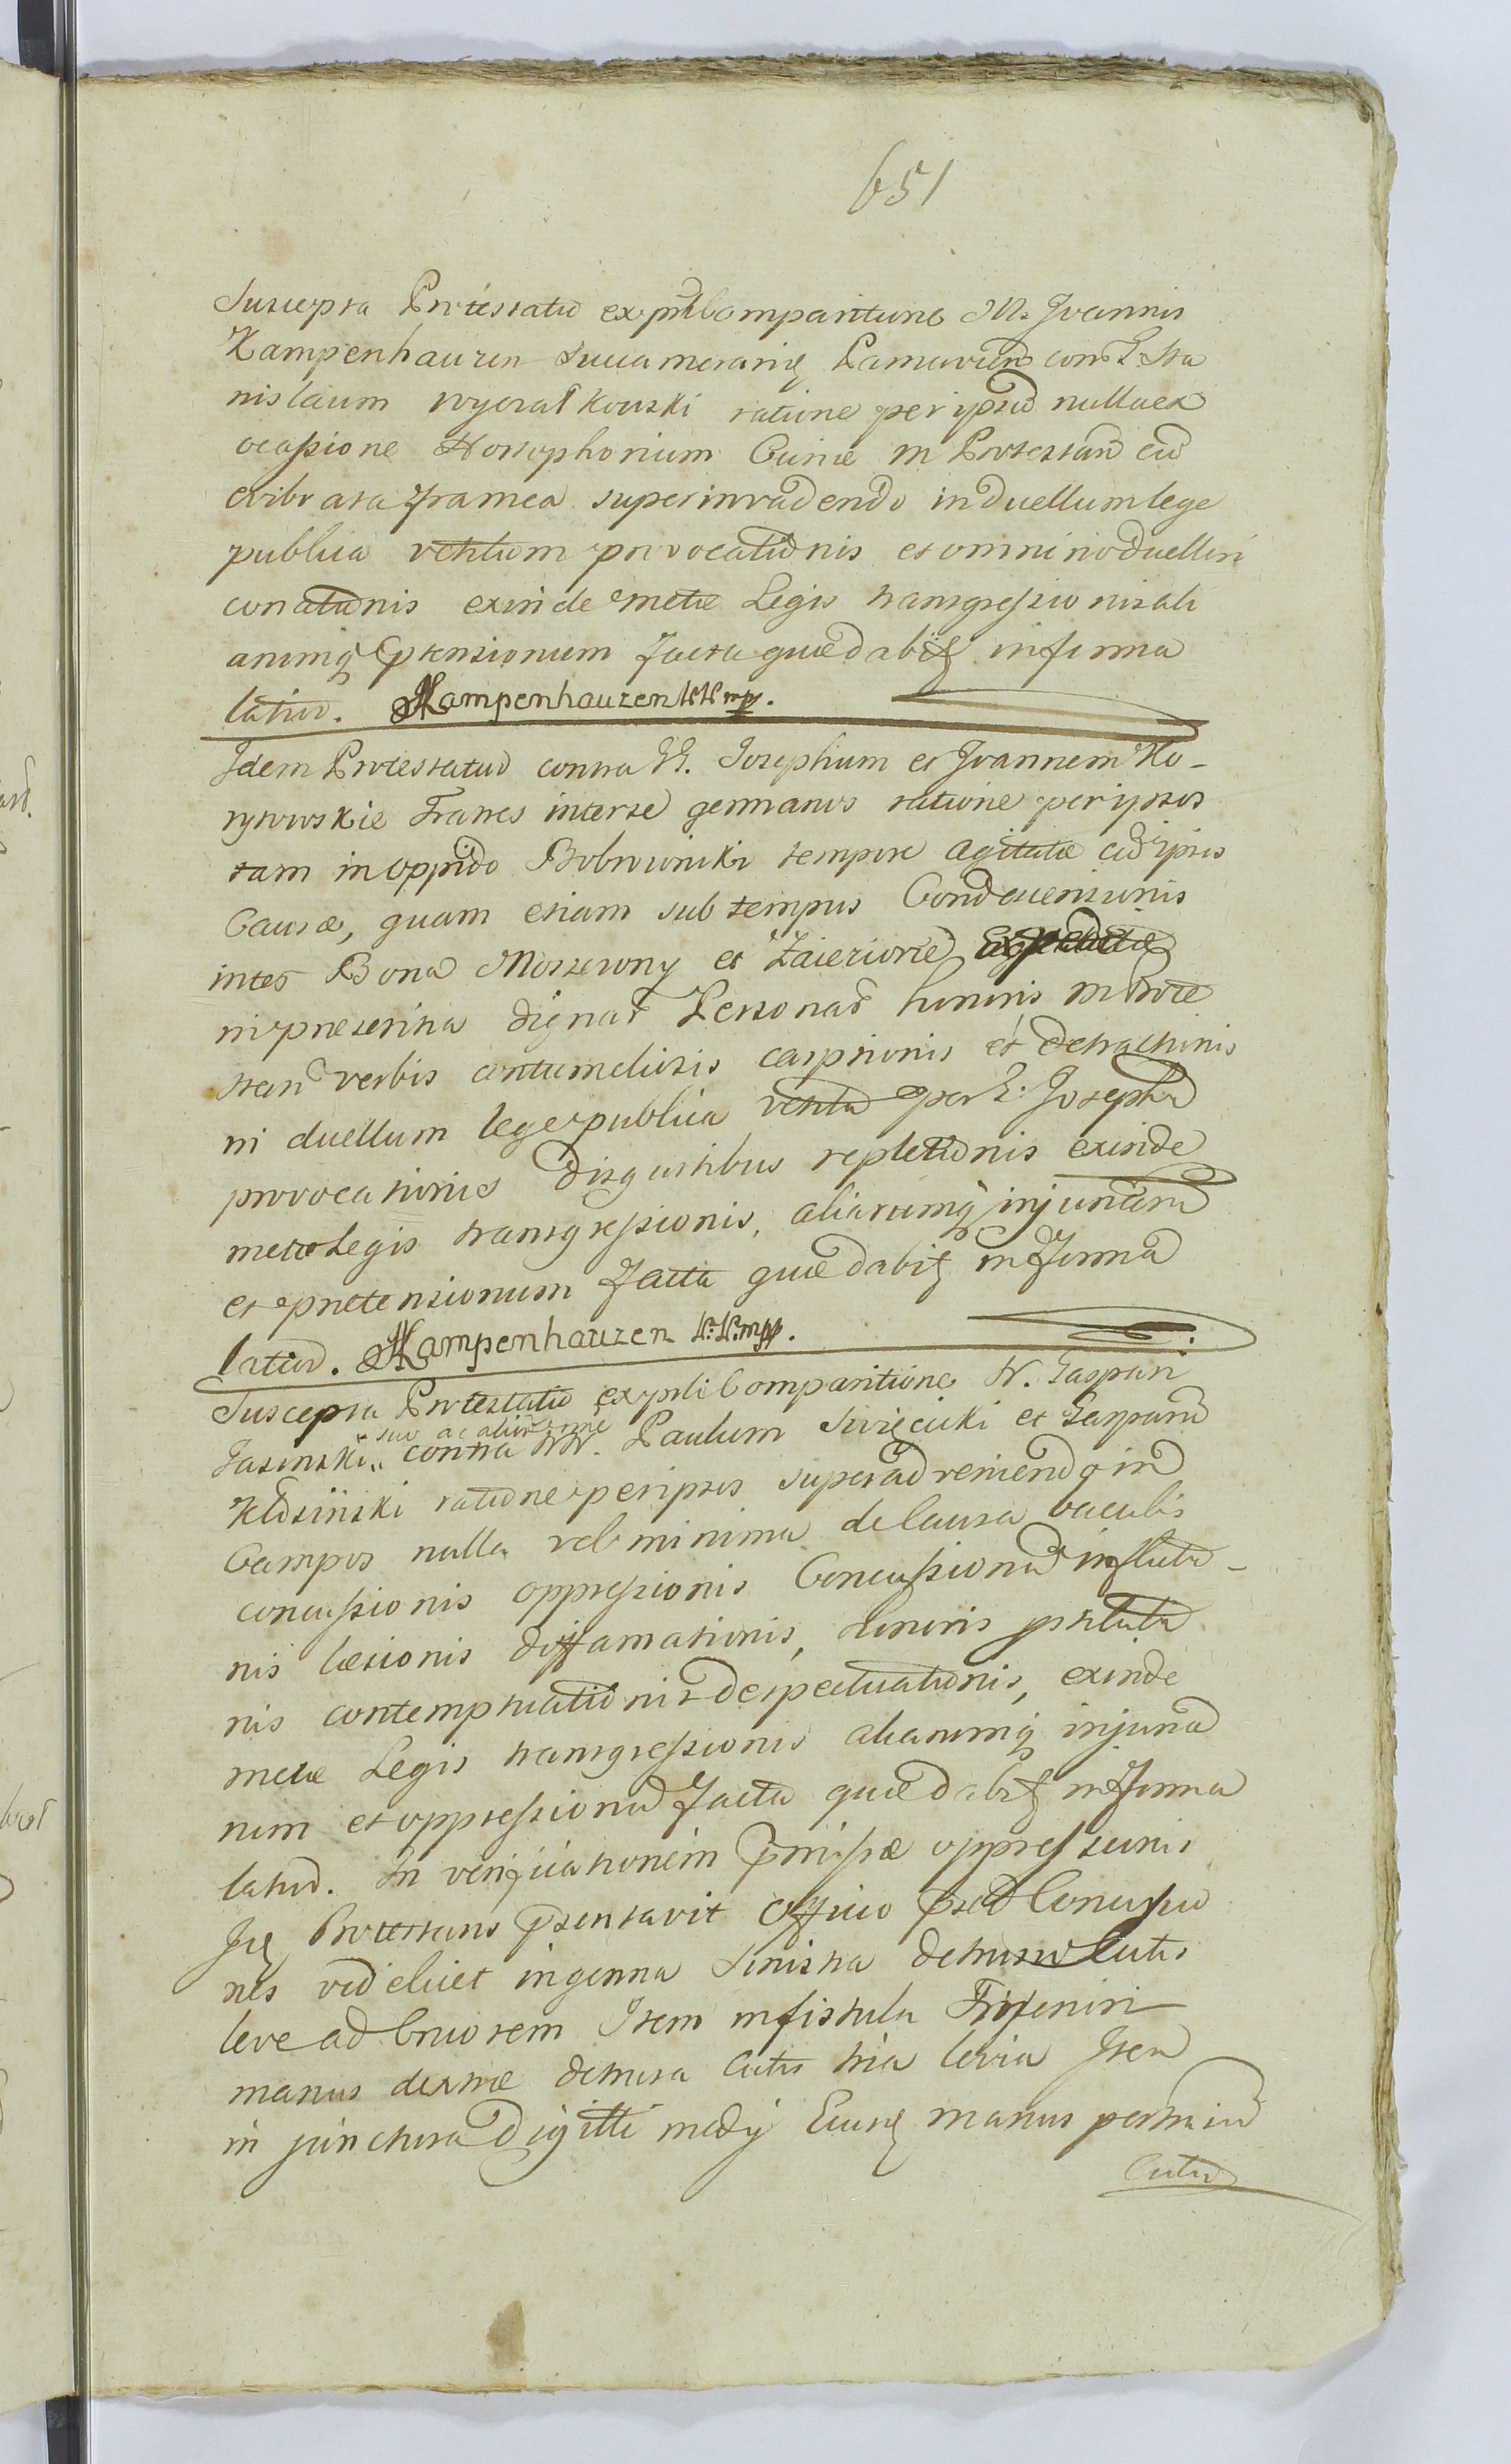 651
Suscepta Protestatio ex psli Comparitione M. Joannis
Kampenhauzen Succamerarii Parnavien contra G. Sta
nislaum Wyczałkowski ratione per ipsum nulla ex
ocassione Horophonium Curiae M Protestan cum
evibrata framea superinvadendo in duellum lege
publica vetitum provocationis et omnino duellini
conationis exinde metae Legis transgressionis ali
arumq ptensionum facta quae dabitur in forma
latiori. Kampenhauzen PP mp.
Idem Protestatur contra GG. Josephum et Joannem Ko-
rytowskie Fratres inter se germanos ratione per ipsos
tam in oppido Bobrowniki tempore agitatae cum ipsis
Causae, quam etiam sub tempus Condescensionis
inter Bona Moszczony et Zaieziorze
in praesentia dignar Personar honoris M Prote
stan verbis contumeliosis carptionis et detractionis
in duellum lege publica vetitum per G. Josephum
provocationis disgustibus repletionis exinde
metae Legis transgressionis, aliarumq injuriarum
et praetensionum facta quae dabitur in forma
latiori. Kampenhauzen P. P. mpp.
Suscepta Protestatio ex psli Comparitione W. Gaspari
suo ac alior nomine
Jasinski contra WW. Paulum Swięcicki et Gasparum
Kłosinski ratione per ipsos superadveniendo in
Campos nulla vel minima de causa baculis
concussionis oppressionis Concussionum inflictio-
nis laesionis diffamationis, honoris pstitutio
nis contemptuationis despectuationis, exinde
metae Legis transgressionis aliarumq injuria
rum et oppressionum facta quae dabitur in forma
latiori. In verificationem pmissae oppressionis
Idem Protestans psentavit Officio pred Concussio
nes videlicet in genna sinistra detrusio Cutis
leve ad Cruorem Item in fistula
manus dextrae detrusa Cutis tria levia Item
in junctura digitti medij Eiusd manus pertritio
Cutis